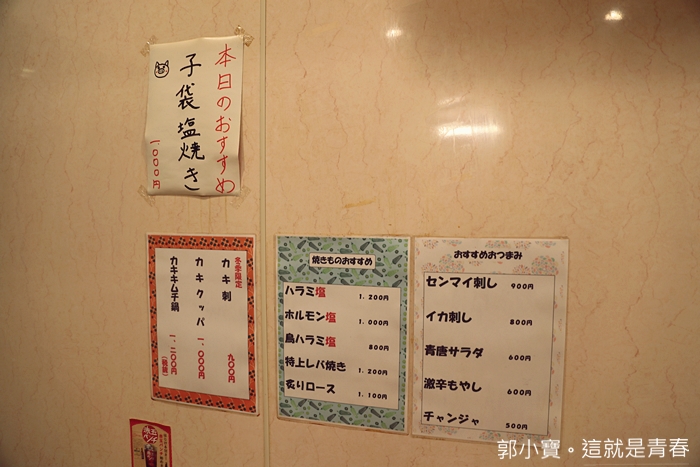 本日のおすすめ
子袋塩焼き
1.000円
冬季限定
カキ刺 九〇〇円
カキクッパ 一、〇〇〇円
カキキムチ鍋 一、二〇〇円(税抜)
焼きものおすすめ
ハラミ塩 1.200円
ホルモン塩 1.000円
鳥ハラミ塩 800円
特上レバ焼き 1.200円
炙りロース 1.100円
おすすめおつまみ
センマイ刺し 900円
イカ刺し 800円
青唐サラダ 600円
激辛もやし 600円
チャンジャ 500円
郭小寶。這就是青春